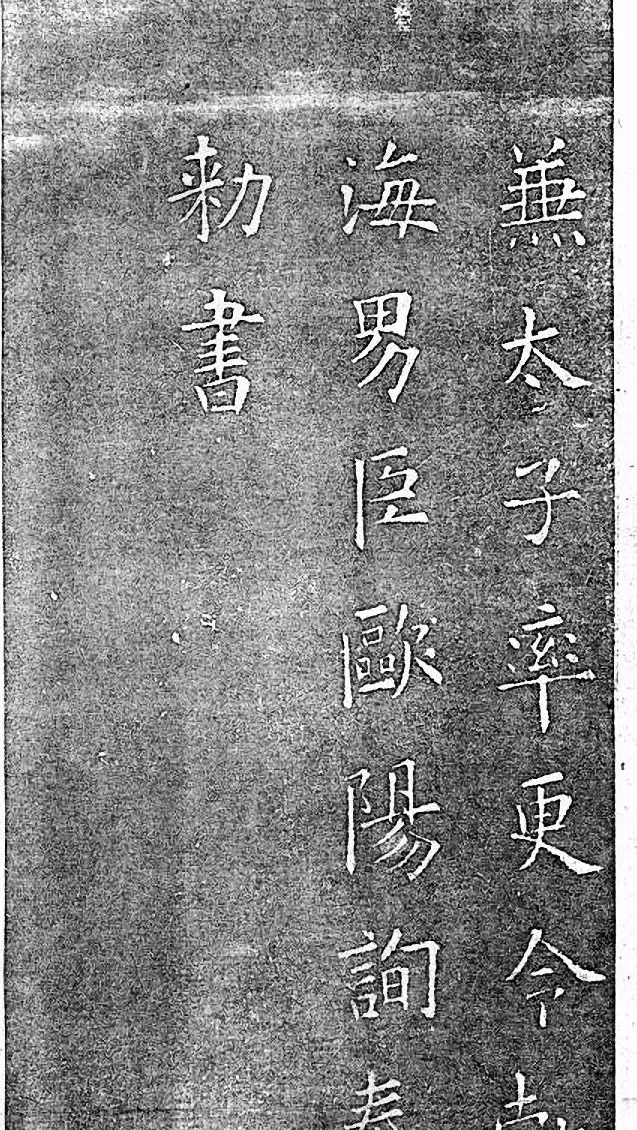 兼太子率更令勃
海男臣歐陽詢奉
勑書